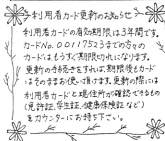 利用者カード更新のお知らせ
利用者カードの有効期限は3年間です。
カードNo.0011752までの方々の
カードはもうすぐ期限切れになります。
更新の手続きをすれば、期限後もカード
はそのままお使い頂けます。更新の際には
利用者カードと現住所が確認できるもの
(免許証、学生証、健康保険証など)
をカウンターにお持ち下さい。